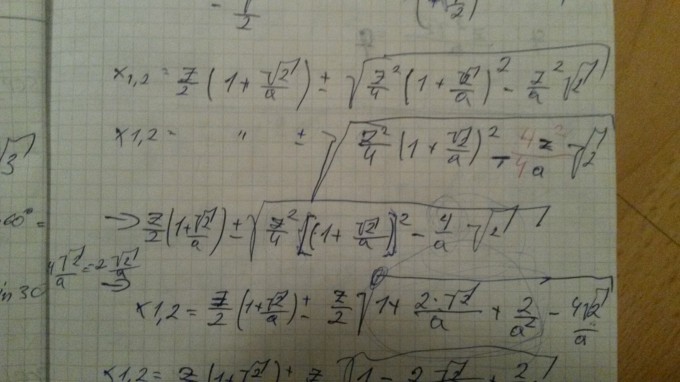 x1,2 = z/2 (1 + √2/a) ± √(z²/4 (1 + √2/a)² - z²/a √2)
x1,2 = " ± √(z²/4 (1 + √2/a)² - 4z²/4a √2)
√3
→ z/2 (1 + √2/a) ± √(z²/4 [(1 + √2/a)]² - 4/a √2)
60° =
4√2/a = -2 √2/a
→
in 30
x1,2 = z/2 (1 + √2/a) ± z/2 √(1 + 2·√2/a + 2/a² - 4√2/a)
x1,2 = z (1 + √2) ± z √(1 - 2√2 + 2